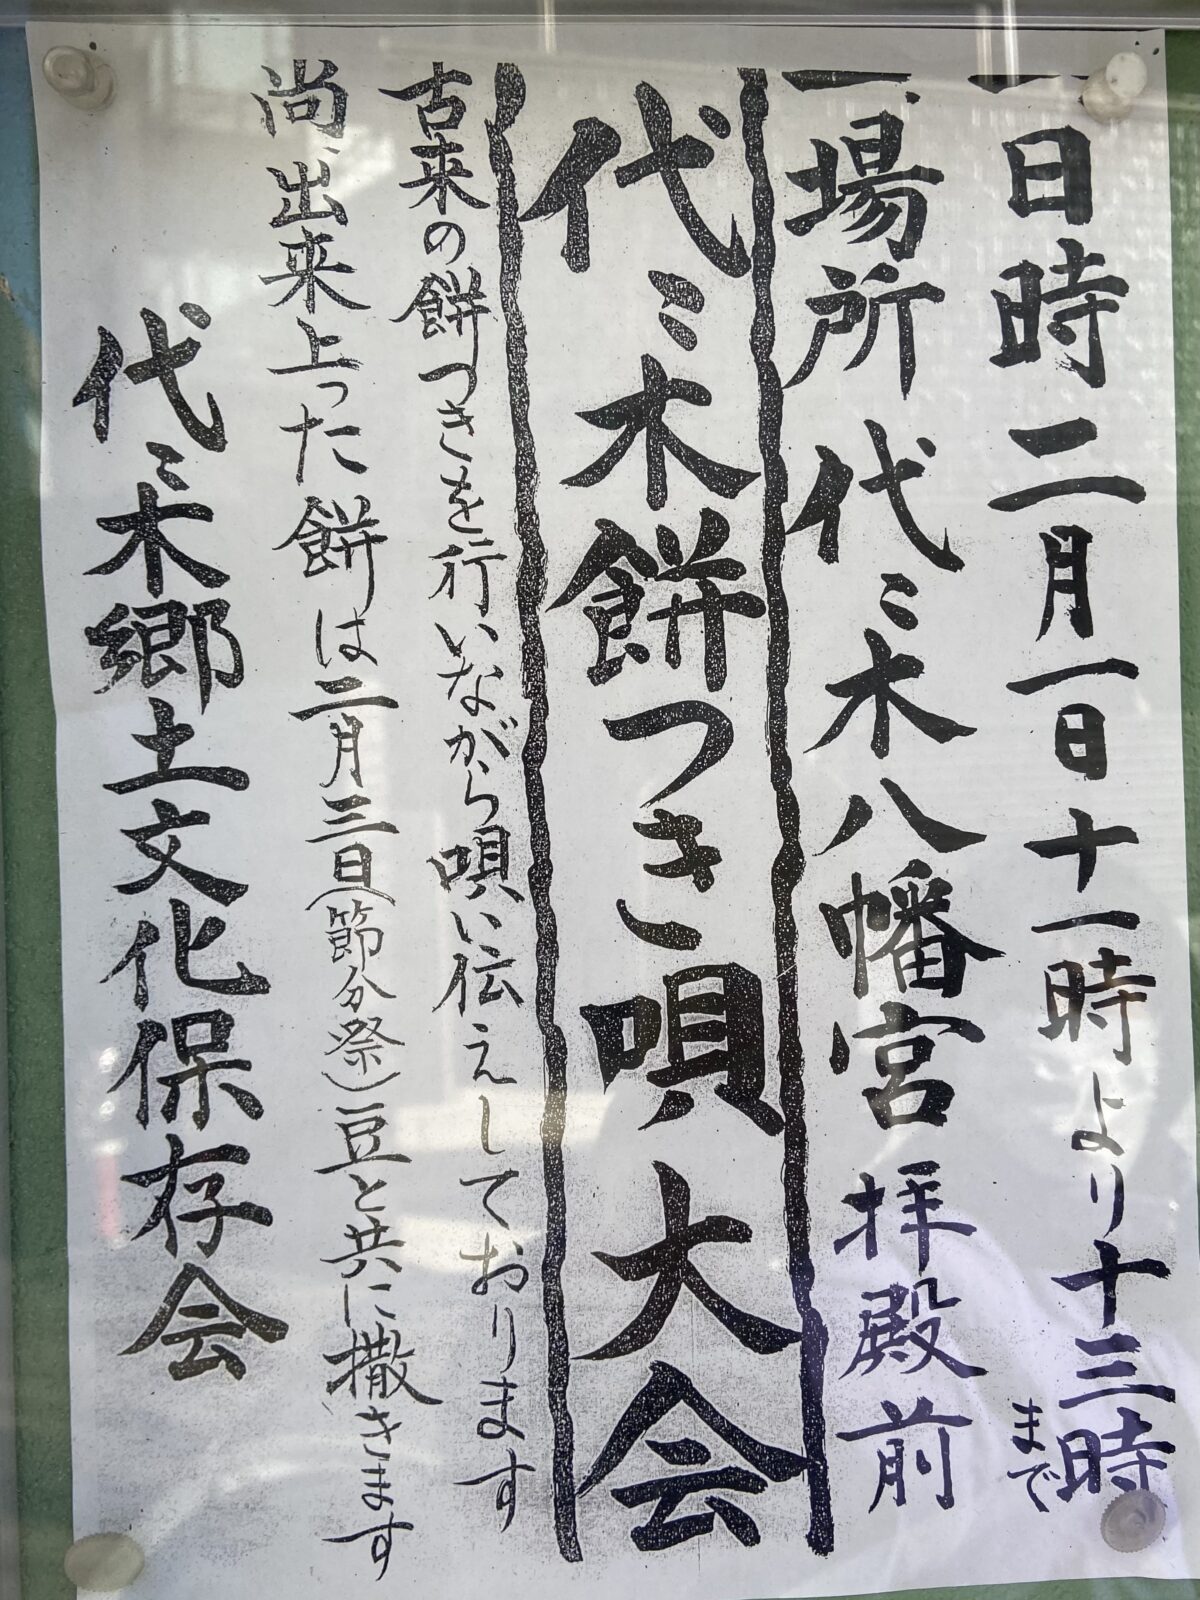 一日時 二月一日十一時より十三時まで
一、場所 代々木八幡宮 拝殿前
代々木餅つき唄大会
古来の餅つきを行いながら唄い伝えしております
尚、出来上った餅は二月三日(節分祭)豆と共に撒きます
代々木郷土文化保存会